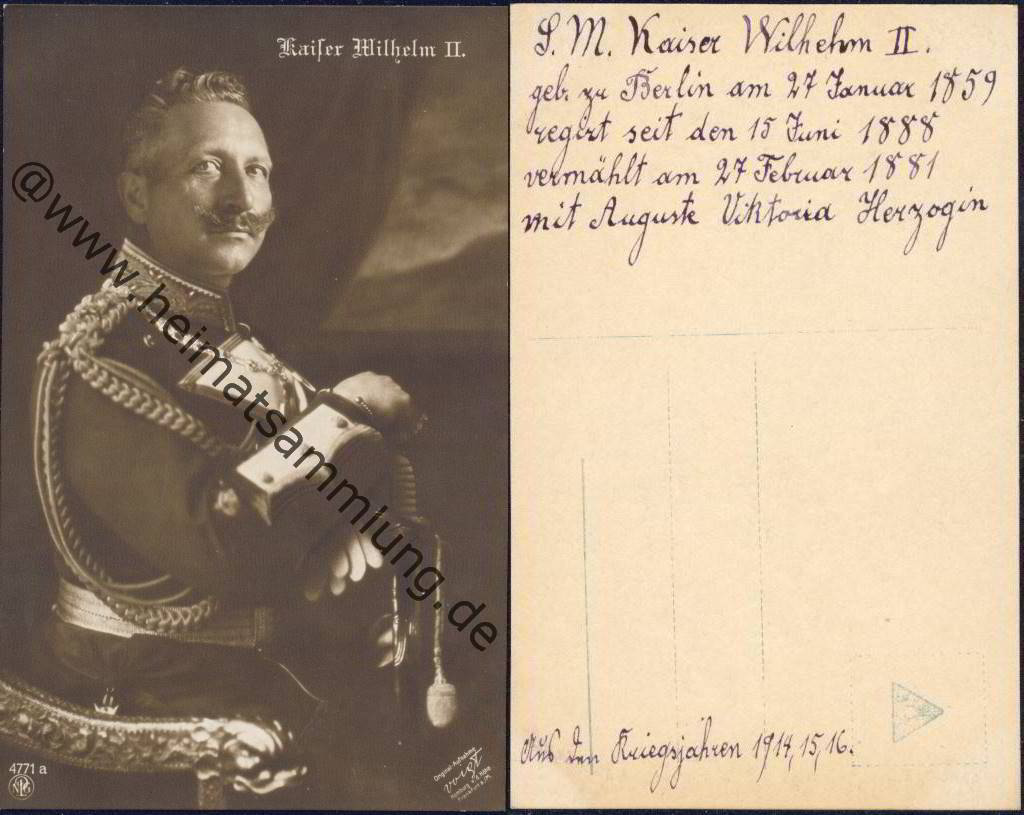 Kaiser Wilhelm II.
@www.heimatsammlung.de
4771 a
NPG
Original-Aufnahme
Voigt
Homburg v.d. Höhe
Frankfurt a./M.
S. M. Kaiser Wilhelm II.
geb. zu Berlin am 27 Januar 1859
regirt seit den 15 Juni 1888
vermählt am 27 Februar 1881
mit Auguste Viktoria Herzogin
Aus den Kriegsjahren 1914, 15, 16.